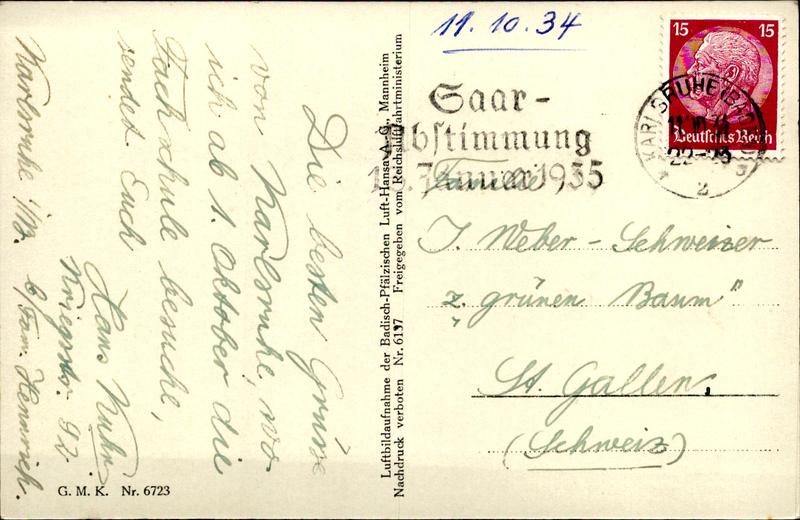 11.10.34
15 15
Deutsches Reich
KARLSRUHE (BADEN)
22-23
2
Saar-
Abstimmung
13. Januar 1935
Familie
J. Weber-Schweizer
z. grünen Baum"
St. Gallen.
(Schweiz)
Luftbildaufnahme der Badisch-Pfälzischen Luft-Hansa A. G., Mannheim
Nachdruck verboten Nr. 6137 Freigegeben vom Reichsluftfahrtministerium
Die besten Grüsse
von Karlsruhe, wo
ich ab 1. Oktober die
Fachschule besuche,
sendet Euch
Hans Kuhn.
Kriegsstr. 92
b/Fam. Hennrich.
Karlsruhe i/B.
G. M. K. Nr. 6723